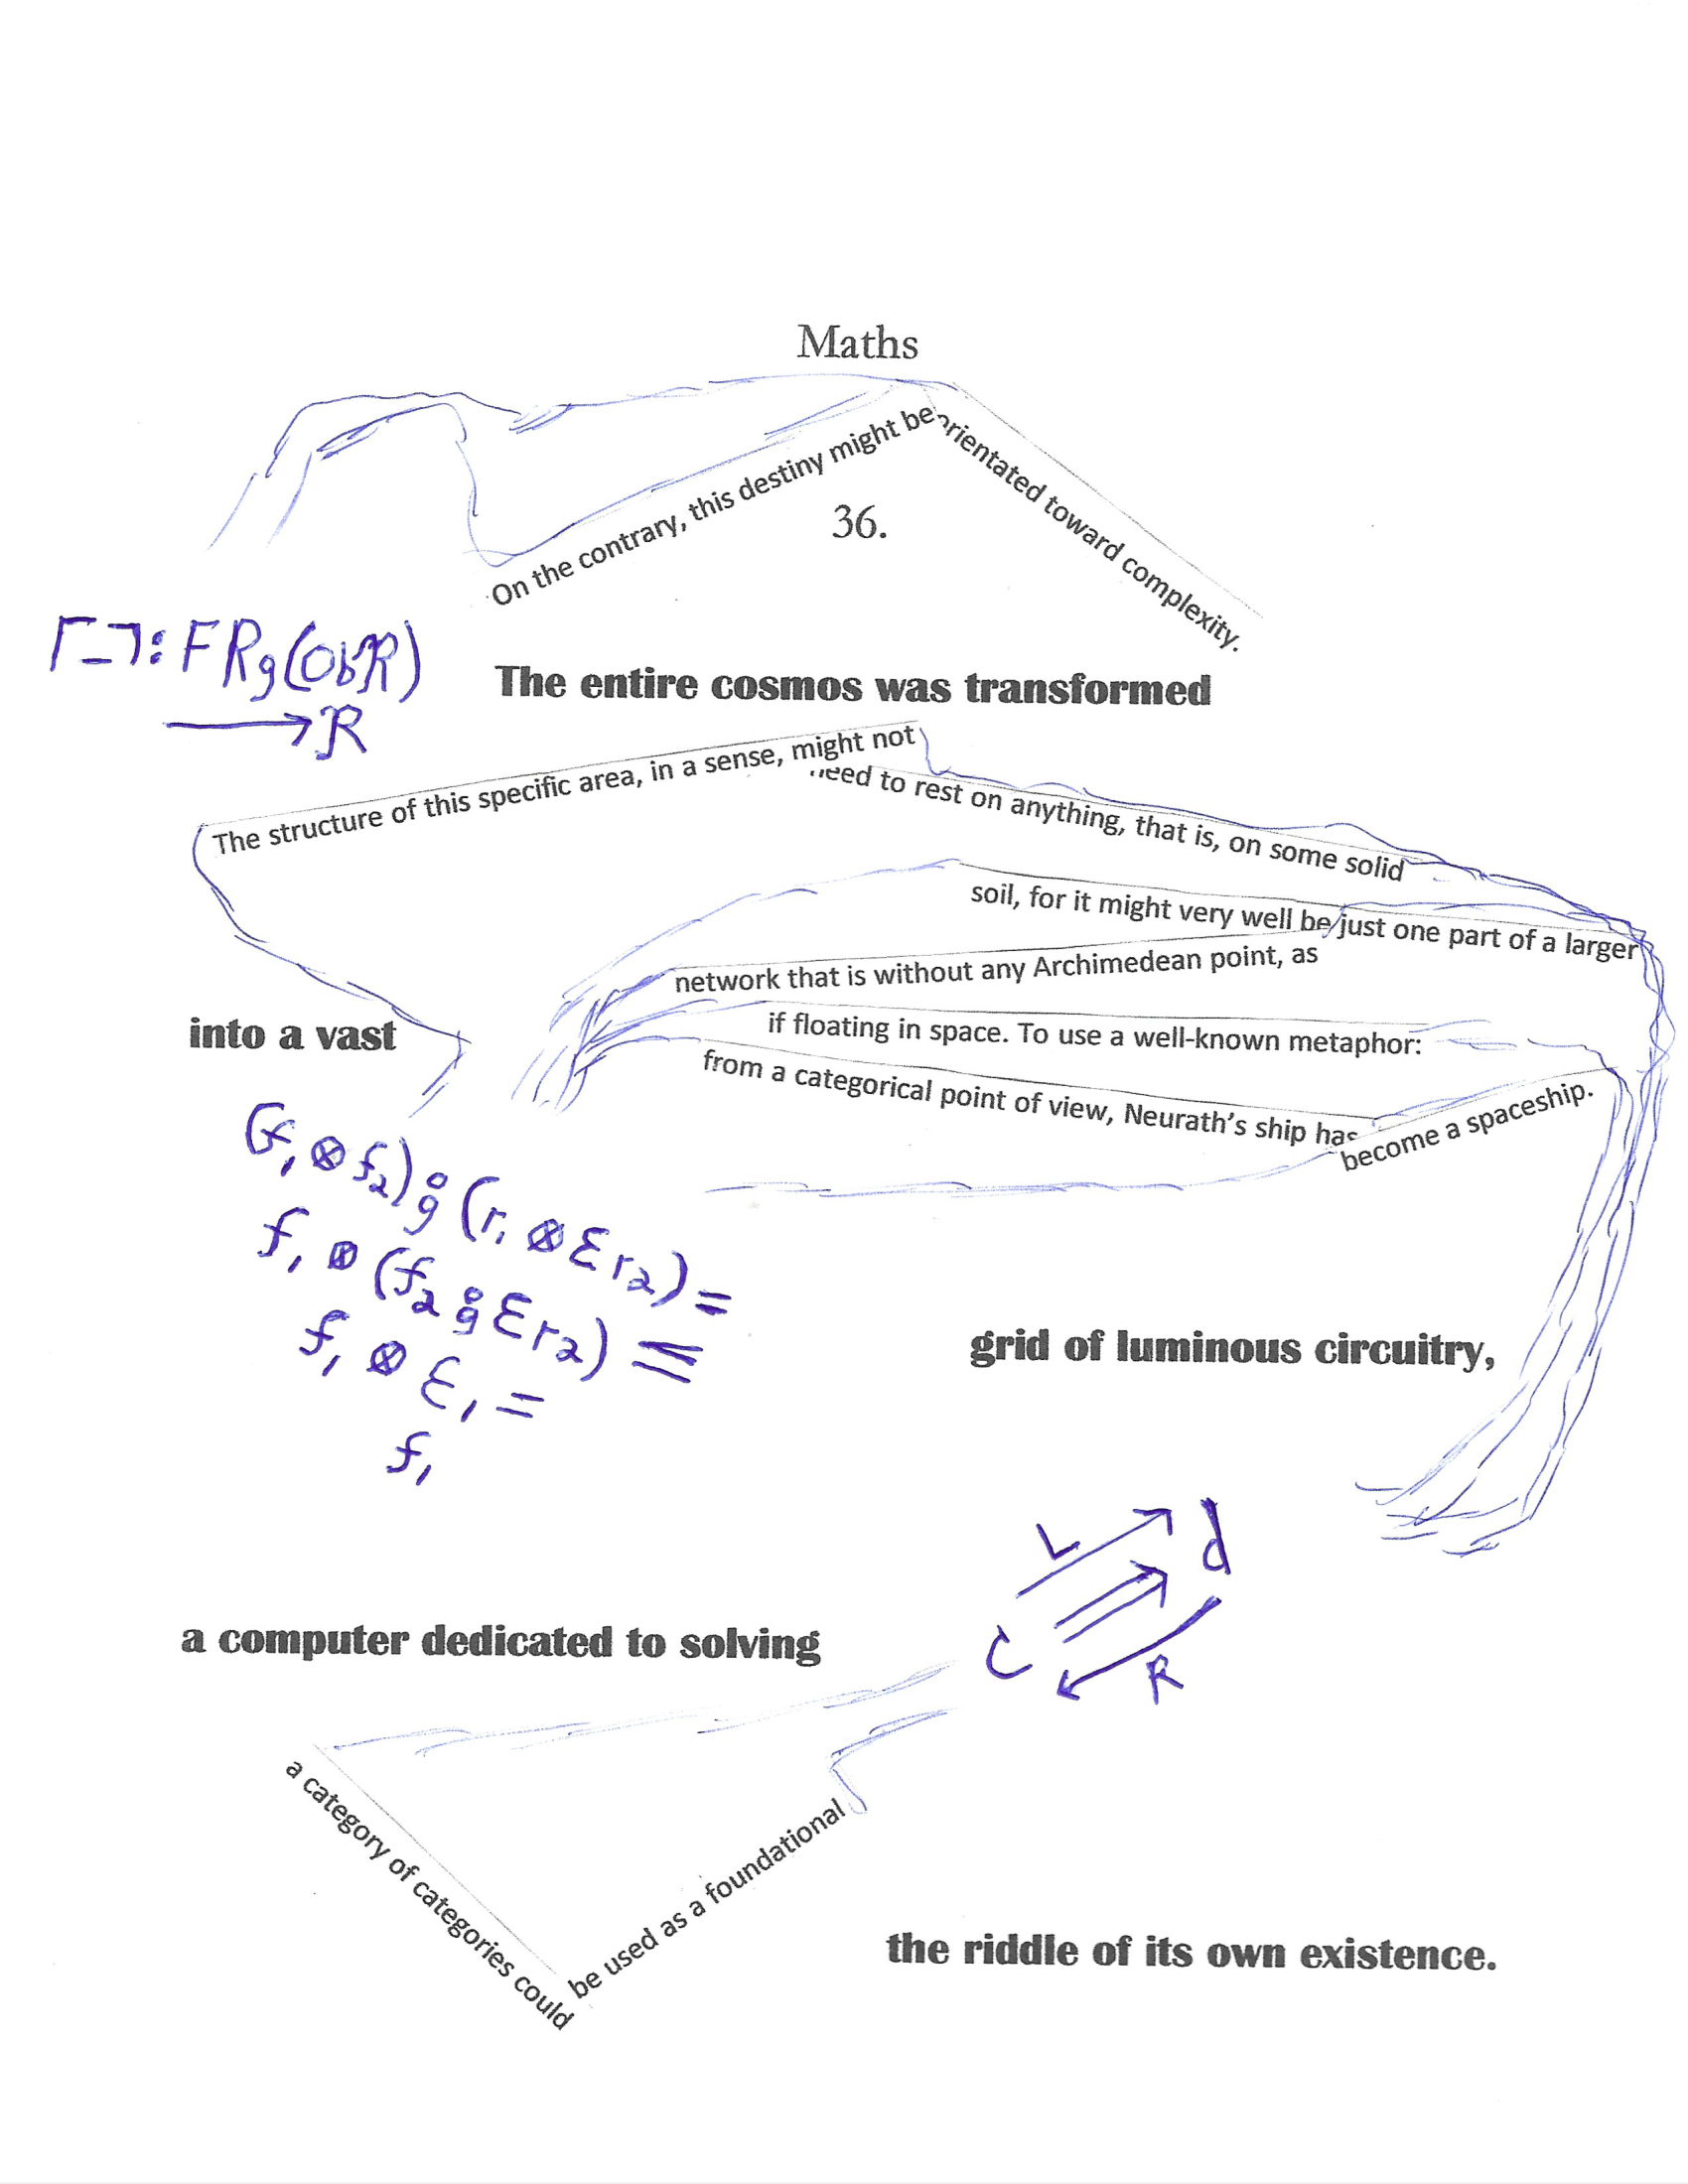 Maths
On the contrary, this destiny might be
orientated toward complexity.
36.
⌜-⌝: FRg(Ob R)
→ R
The entire cosmos was transformed
The structure of this specific area, in a sense, might not
need to rest on anything, that is, on some solid
soil, for it might very well be just one part of a larger
network that is without any Archimedean point, as
if floating in space. To use a well-known metaphor:
from a categorical point of view, Neurath's ship has
become a spaceship.
into a vast
(f₁ ⊗ f₂) ⨾ (r₁ ⊗ εr₂) =
f₁ ⊗ (f₂ ⨾ εr₂) =
f₁ ⊗ ε₁ =
f₁
grid of luminous circuitry,
L
d
C
R
a computer dedicated to solving
a category of categories could
be used as a foundational
the riddle of its own existence.